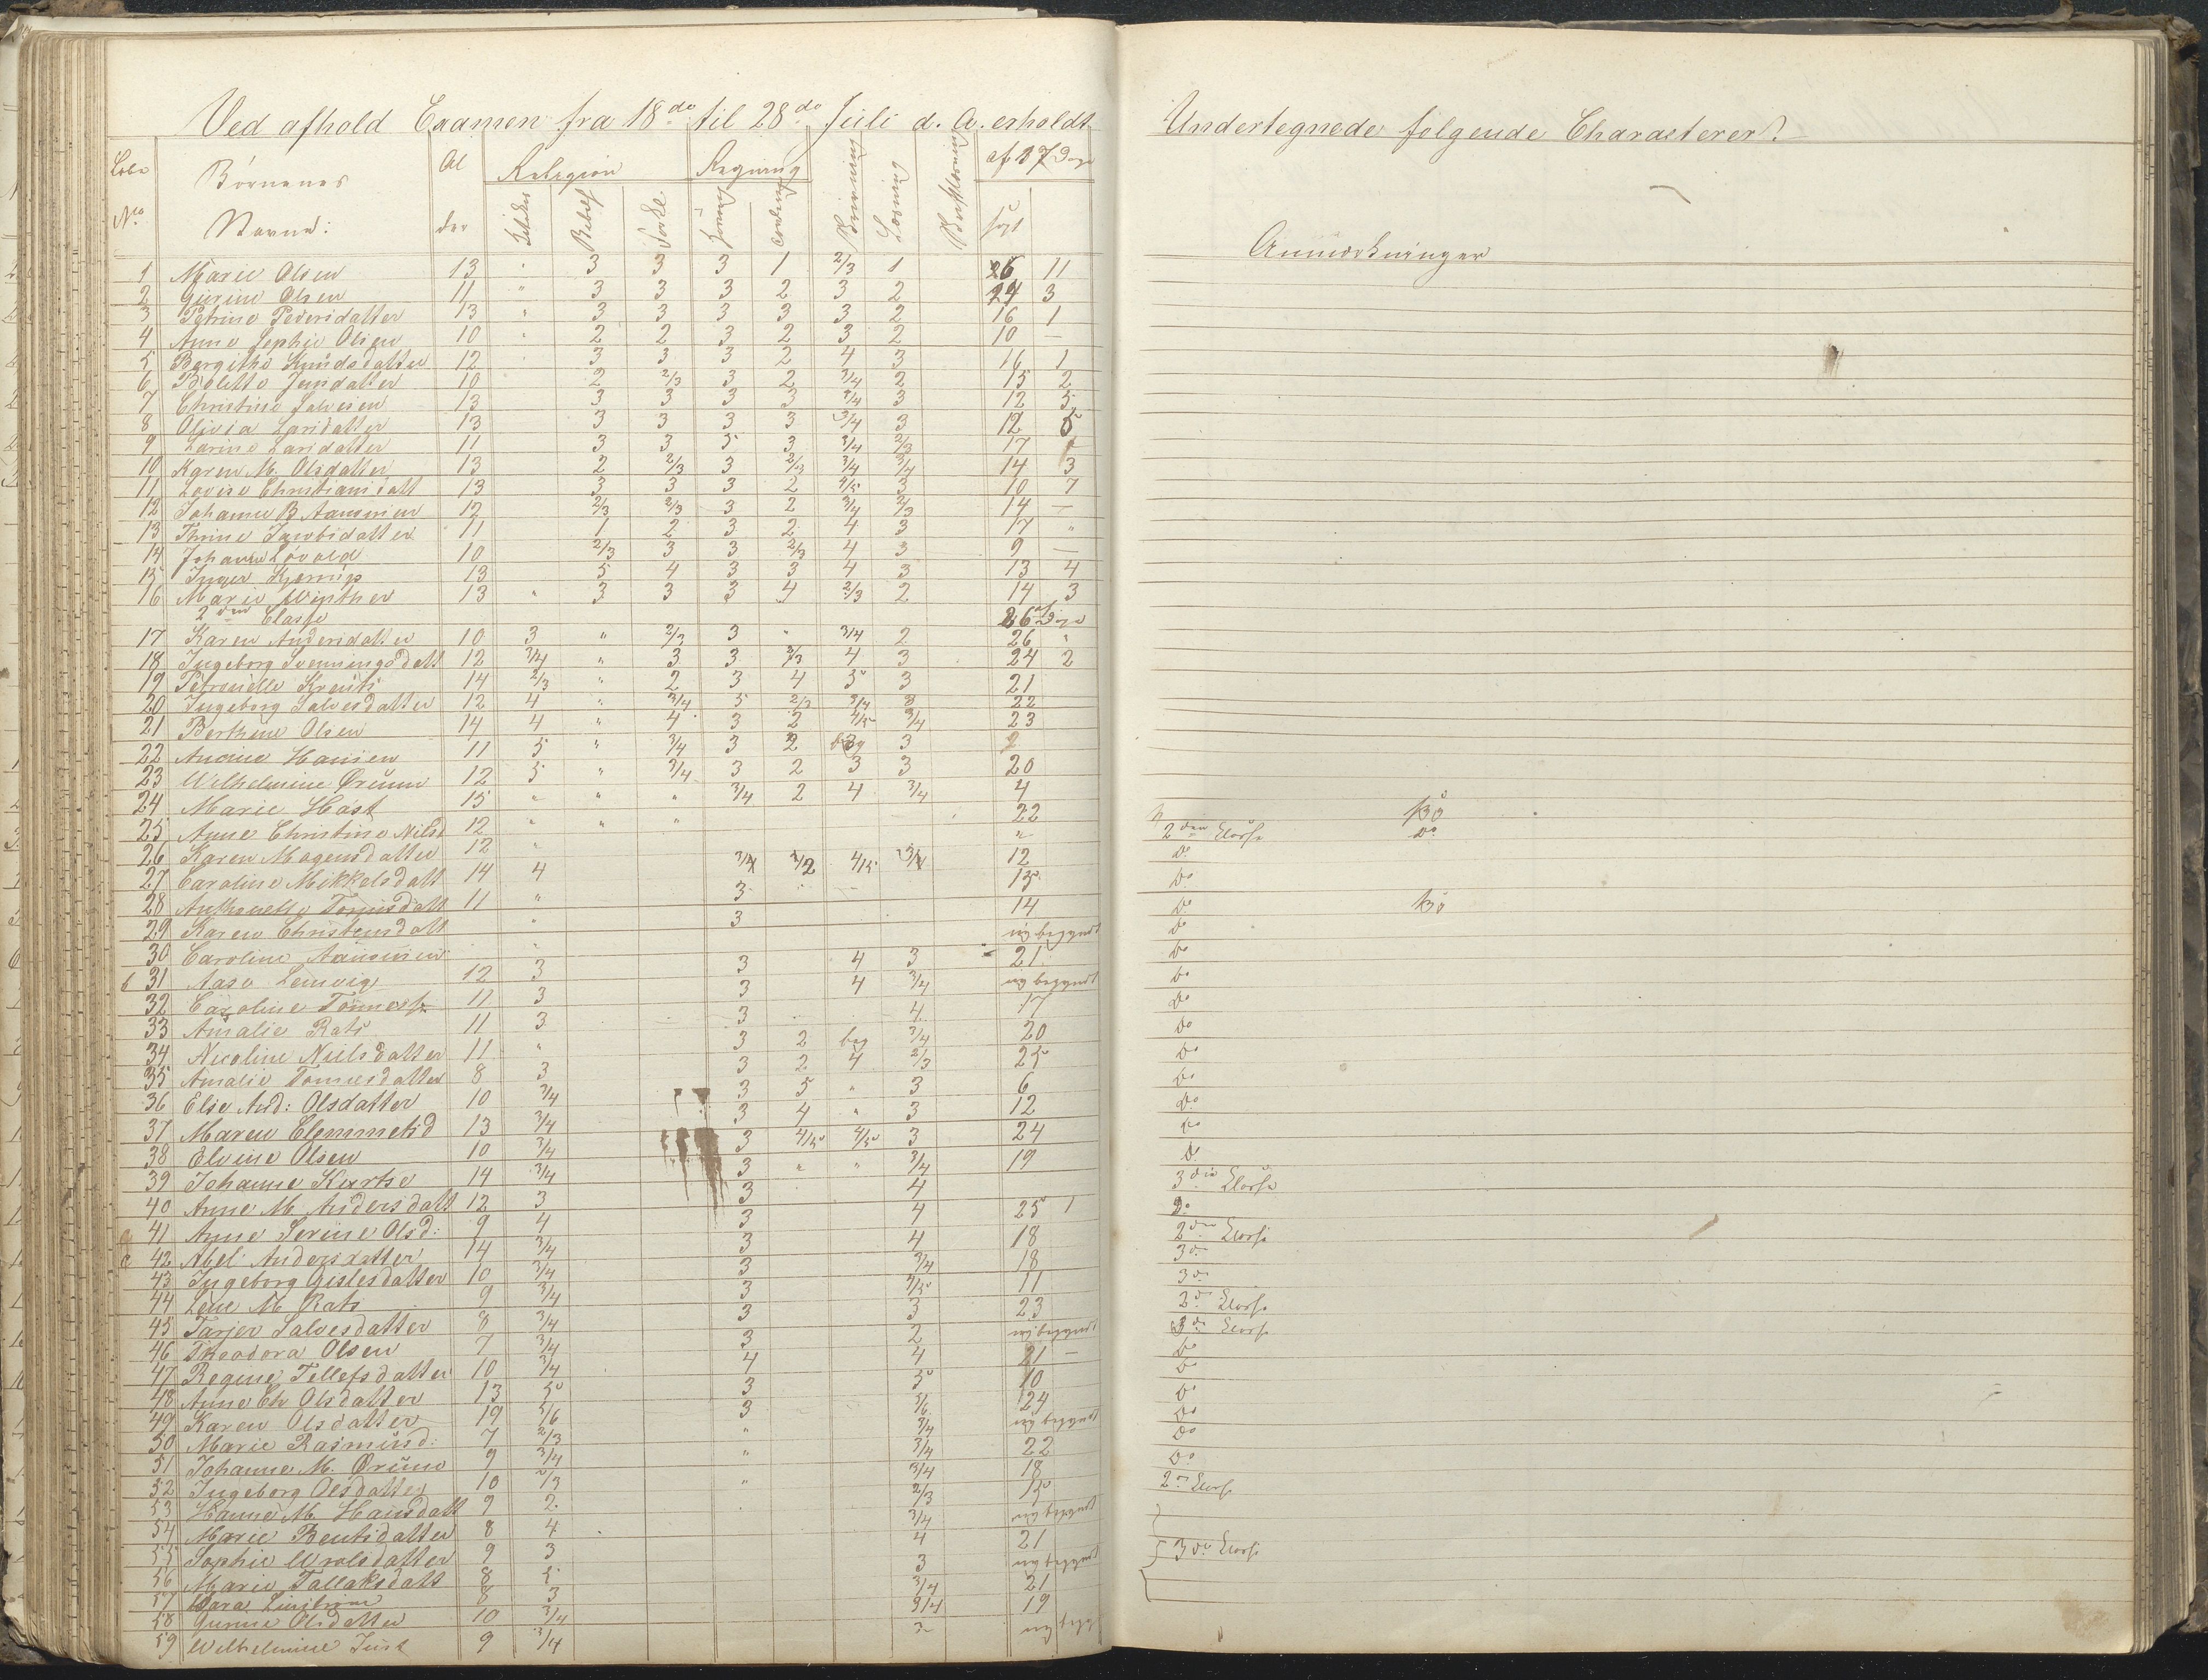 Ved afhold Examen fra 18de til 28de Juli d. A. erholdt Undertegnede følgende Characterer.
Løbe No. Børnenes Navne: Alder Religion Regning Skrivning Læsning af 17 Dage
Anmærkninger
1 Marie Olsen 13 " 3 3 3 1 2/3 1 26 11
2 Gurine Olsen 11 " 3 3 3 2 3 2 24 3
3 Petrine Pedersdatter 13 " 3 3 3 3 3 2 16 1
4 Anne Sophie Olsen 10 " 2 2 3 2 3 2 10 —
5 Bergithe Knudsdatter 12 3 3 3 2 4 3 16 1
6 Jensdatter 10 2 2/3 3 2 3/4 2 15 2
7 Christine Salvesen 13 3 3 3 3 3/4 3 12 5
8 Olivia Larsdatter 13 3 3 3 3 3/4 3 12 5
9 Larine Larsdatter 11 3 3 5 3 3/4 2/3 17
10 Karen M. Olsdatter 13 2 2/3 3 2/3 3/4 3/4 14 3
11 Lovise Christiansdatt 13 3 3 3 2 4/5 3 10 7
12 Johanne B Aanonsen 12 2/3 2/3 3 2 3/4 2/3 14 —
13 Thrine Jacobsdatter 11 1 2 3 2 4 3 17 "
14 Johanne Løvold 10 2/3 3 3 2/3 4 3 9 —
15 Inger 13 5 4 3 3 4 3 13 4
16 Marie Winther 13 " 3 3 3 4 2/3 2 14 3
2den Classe 26 Dage
17 Karen Andersdatter 10 3 " 2/3 3 " 3/4 2 26 "
18 Ingeborg Svenningsdatt 12 3/4 " 3 3 2/3 4 3 24 2
19 Petronelle 14 2/3 " 2 3 4 5 3 21
20 Ingeborg Salvesdatter 12 4 " 3/4 5 2/3 3/4 3 22
21 Berthine Olsen 14 4 " 4 3 2 4/5 3/4 23
22 Hansen 11 5 " 3/4 3 2 3 2
23 Wilhelmine Ørum 12 5 " 3/4 3 2 3 3 20
24 Marie Høst 15 " " " 3/4 2 4 3/4 4
25 Anne Christine Nilsd 12 " " " 22
26 Karen Mogensdatter 12 " " 2den Classe Do
27 Caroline Mikkelsdatt 14 4 3/4 4/5 12 Do
28 Tønnesdatt 11 " 3 15 Do
29 Karen Christensdatt " 3 14 Do
30 Caroline Aanonsen " nÿ begyndt Do
31 Aase Lemvig 12 3 3 4 3 21 Do
32 Caroline Tønnes 11 3 3 4 3/4 nÿ begyndt Do
33 Amalie Rats 11 3 3 4 17 Do
34 Nicoline Nielsdatter 11 " 3 2 beg 3/4 20 Do
35 Amalie Tønnesdatter 8 3 3 2 4 2/3 25 Do
36 Elise And: Olsdatter 10 3/4 3 5 " 3 6 Do
37 Maren Clemmetsd 13 3/4 3 4 " 3 12 Do
38 Elvine Olsen 10 3/4 3 4/5 4/5 3 24 Do
39 Johanne Kurtse 14 3/4 3 " " 3/4 19 Do
40 Anne M Andersdatt 12 3 3 4 3die Classe
41 Anne Serine Olsd: 9 4 3 4 25 1 Do
42 Abel Andersdatter 14 3/4 3 4 18 2den Classe
43 Ingeborg Gislesdatter 10 3/4 3 3/4 18 3die
44 Lene M Rats 9 3/4 3 11 3die
45 Tarjer Salvesdatter 8 3/4 3 3 23 2den Classe
46 Theodora Olsen 7 3/4 3 2 nÿ begyndt 3die Classe
47 Regine Tellefsdatter 10 3/4 4 4 21 — Do
48 Anne Ch Olsdatter 13 5 3 5 10 Do
49 Karen Olsdatter 19 5/6 3 5/6 24 Do
50 Marie Rasmusd: 7 2/3 " 3/4 nÿ begyndt Do
51 Johanne M. Ørum 9 3/4 " 3/4 22 Do
52 Ingeborg Olsdatter 10 2/3 " 3/4 18 Do
53 Hanne M Hansdatt 9 2 2/3 15 2den Classe
54 Marie Bentsdatter 8 4 3/4 nÿ begyndt
55 Sophie Wrolsdatter 9 3 4 21
56 Marie Tallaksdatt 8 5 3 nÿ begyndt 3die Classe
57 Sara 8 3 3/4 21
58 Gunne Olsdatter 10 3/4 3/4 19
59 Wilhelmine Just 9 3/4 3 nÿ begyndt